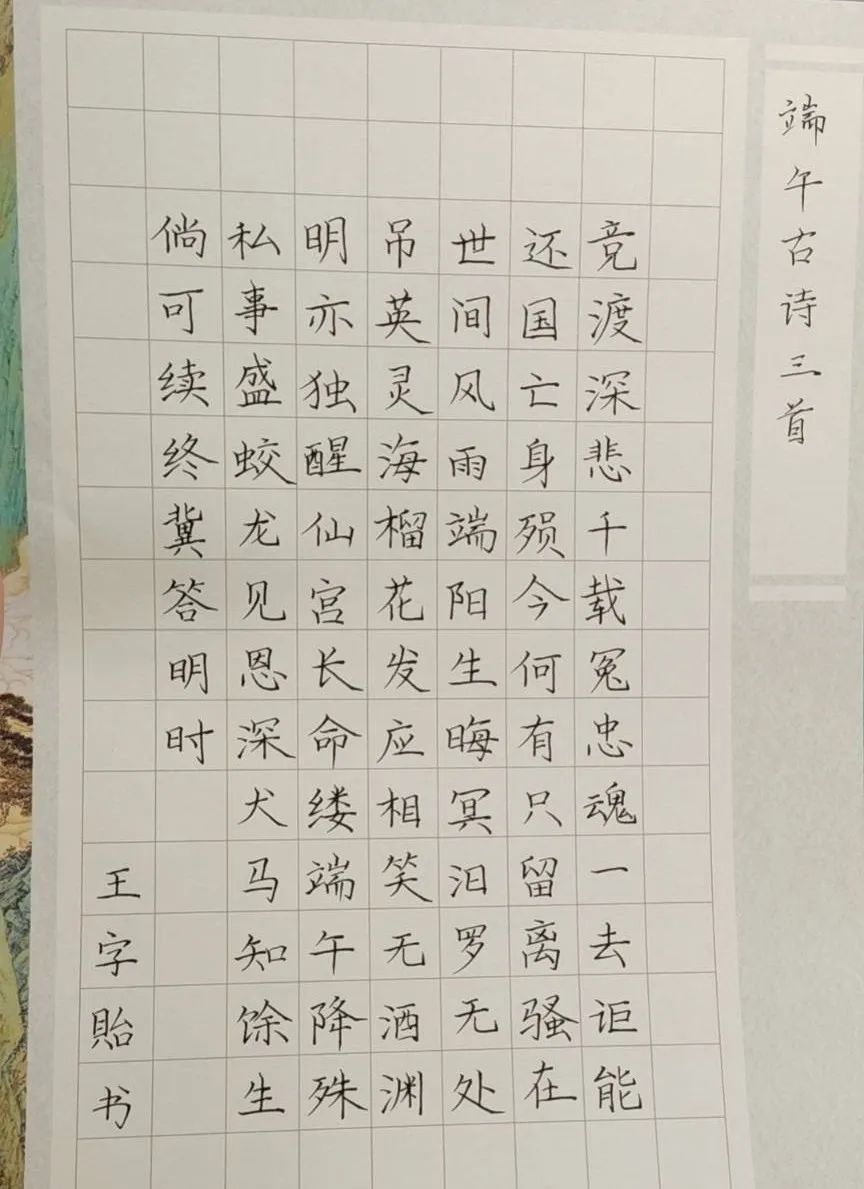 端午古诗三首
竞渡深悲千载冤忠魂一去讵能
还国亡身殒今何有只留离骚在
世间风雨端阳生晦冥汨罗无处
吊英灵海榴花发应相笑无酒渊
明亦独醒仙宫长命缕端午降殊
私事盛蛟龙见恩深犬马知馀生
倘可续终冀答明时
王字贻书